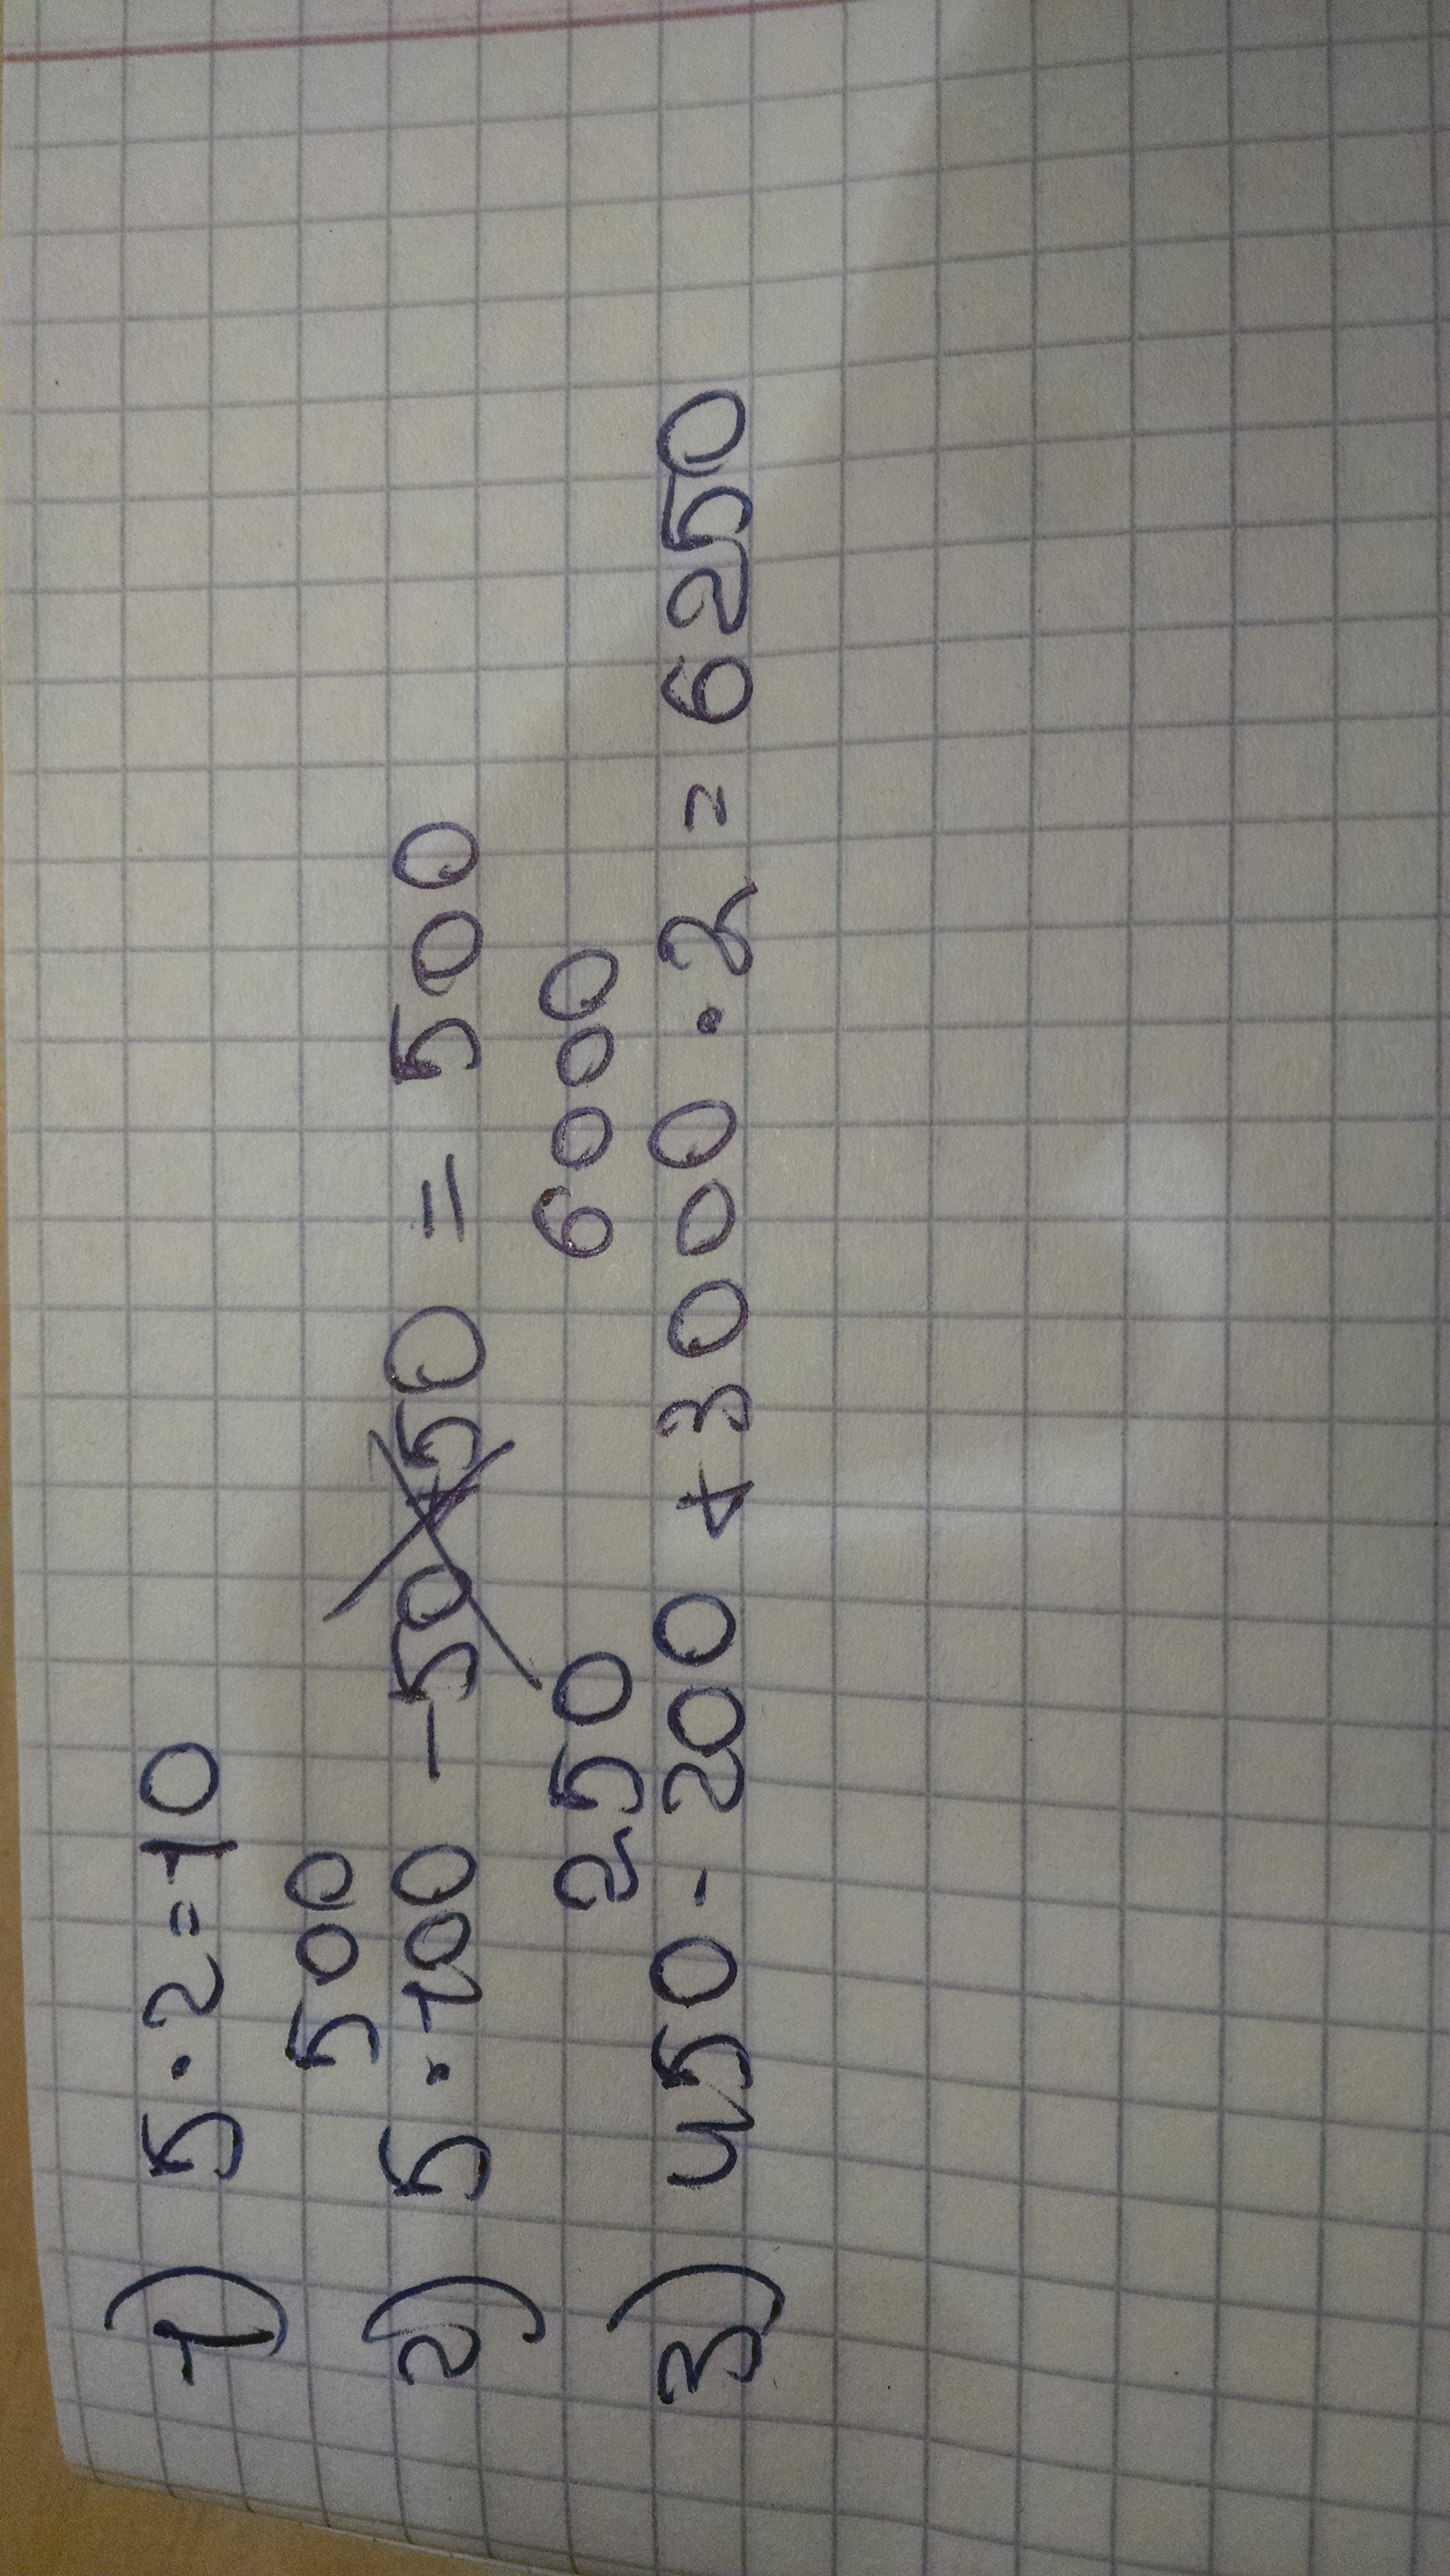 1) 5·2=10
500
2) 5·100 -50+50 = 500
250 6000
3) 450-200 +3000·2 = 6250